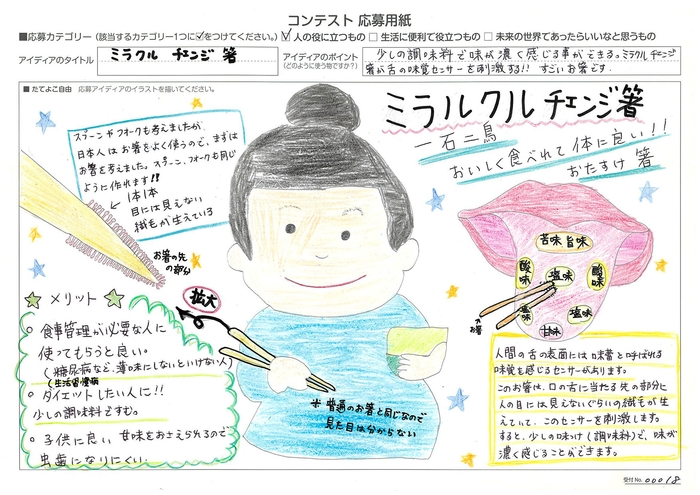 コンテスト 応募用紙
■応募カテゴリー（該当するカテゴリー1つに✓をつけてください。） ☑ 人の役に立つもの □ 生活に便利で役立つもの □ 未来の世界であったらいいなと思うもの
アイディアのタイトル
ミラクル チェンジ 箸
アイディアのポイント
（どのように使う物ですか？）
少しの調味料で味が濃く感じる事ができる。ミラクルチェンジ
箸が舌の味覚センサーを刺激する!! すごいお箸です.
■ たてよこ自由 応募アイディアのイラストを描いてください。
スプーンやフォークも考えましたが
日本人はお箸をよく使うので、まずは
お箸を考えました。スプーン、フォークも同じ
ように作れます!!
1本1本
目には見えない
繊毛が生えている
お箸の先
の部分
ミラルクルチェンジ箸
一石二鳥
おいしく食べれて体に良い!!
おたすけ 箸
☆ メリット ☆
拡大
○ 食事管理が必要な人に
使ってもらうと良い。
(糖尿病など、薄味にしないといけない人)
(生活習慣病
○ ダイエットしたい人に!!
少しの調味料ですむ。
○ 子供に良い 甘味をおさえられるので
虫歯になりにくい.
＊ 普通のお箸と同じなので
見た目は分からない
苦味 旨味
酸味
塩味
酸味
塩味
塩味
甘味
お箸
人間の舌の表面には味蕾と呼ばれる
味覚を感じるセンサーがあります。
このお箸は、口の舌に当たる先の部分に
人の目には見えないぐらいの繊毛が生
えていて、このセンサーを刺激します。
すると、少しの味つけ(調味料)で、味が
濃く感じることができます。
受付No. 00018